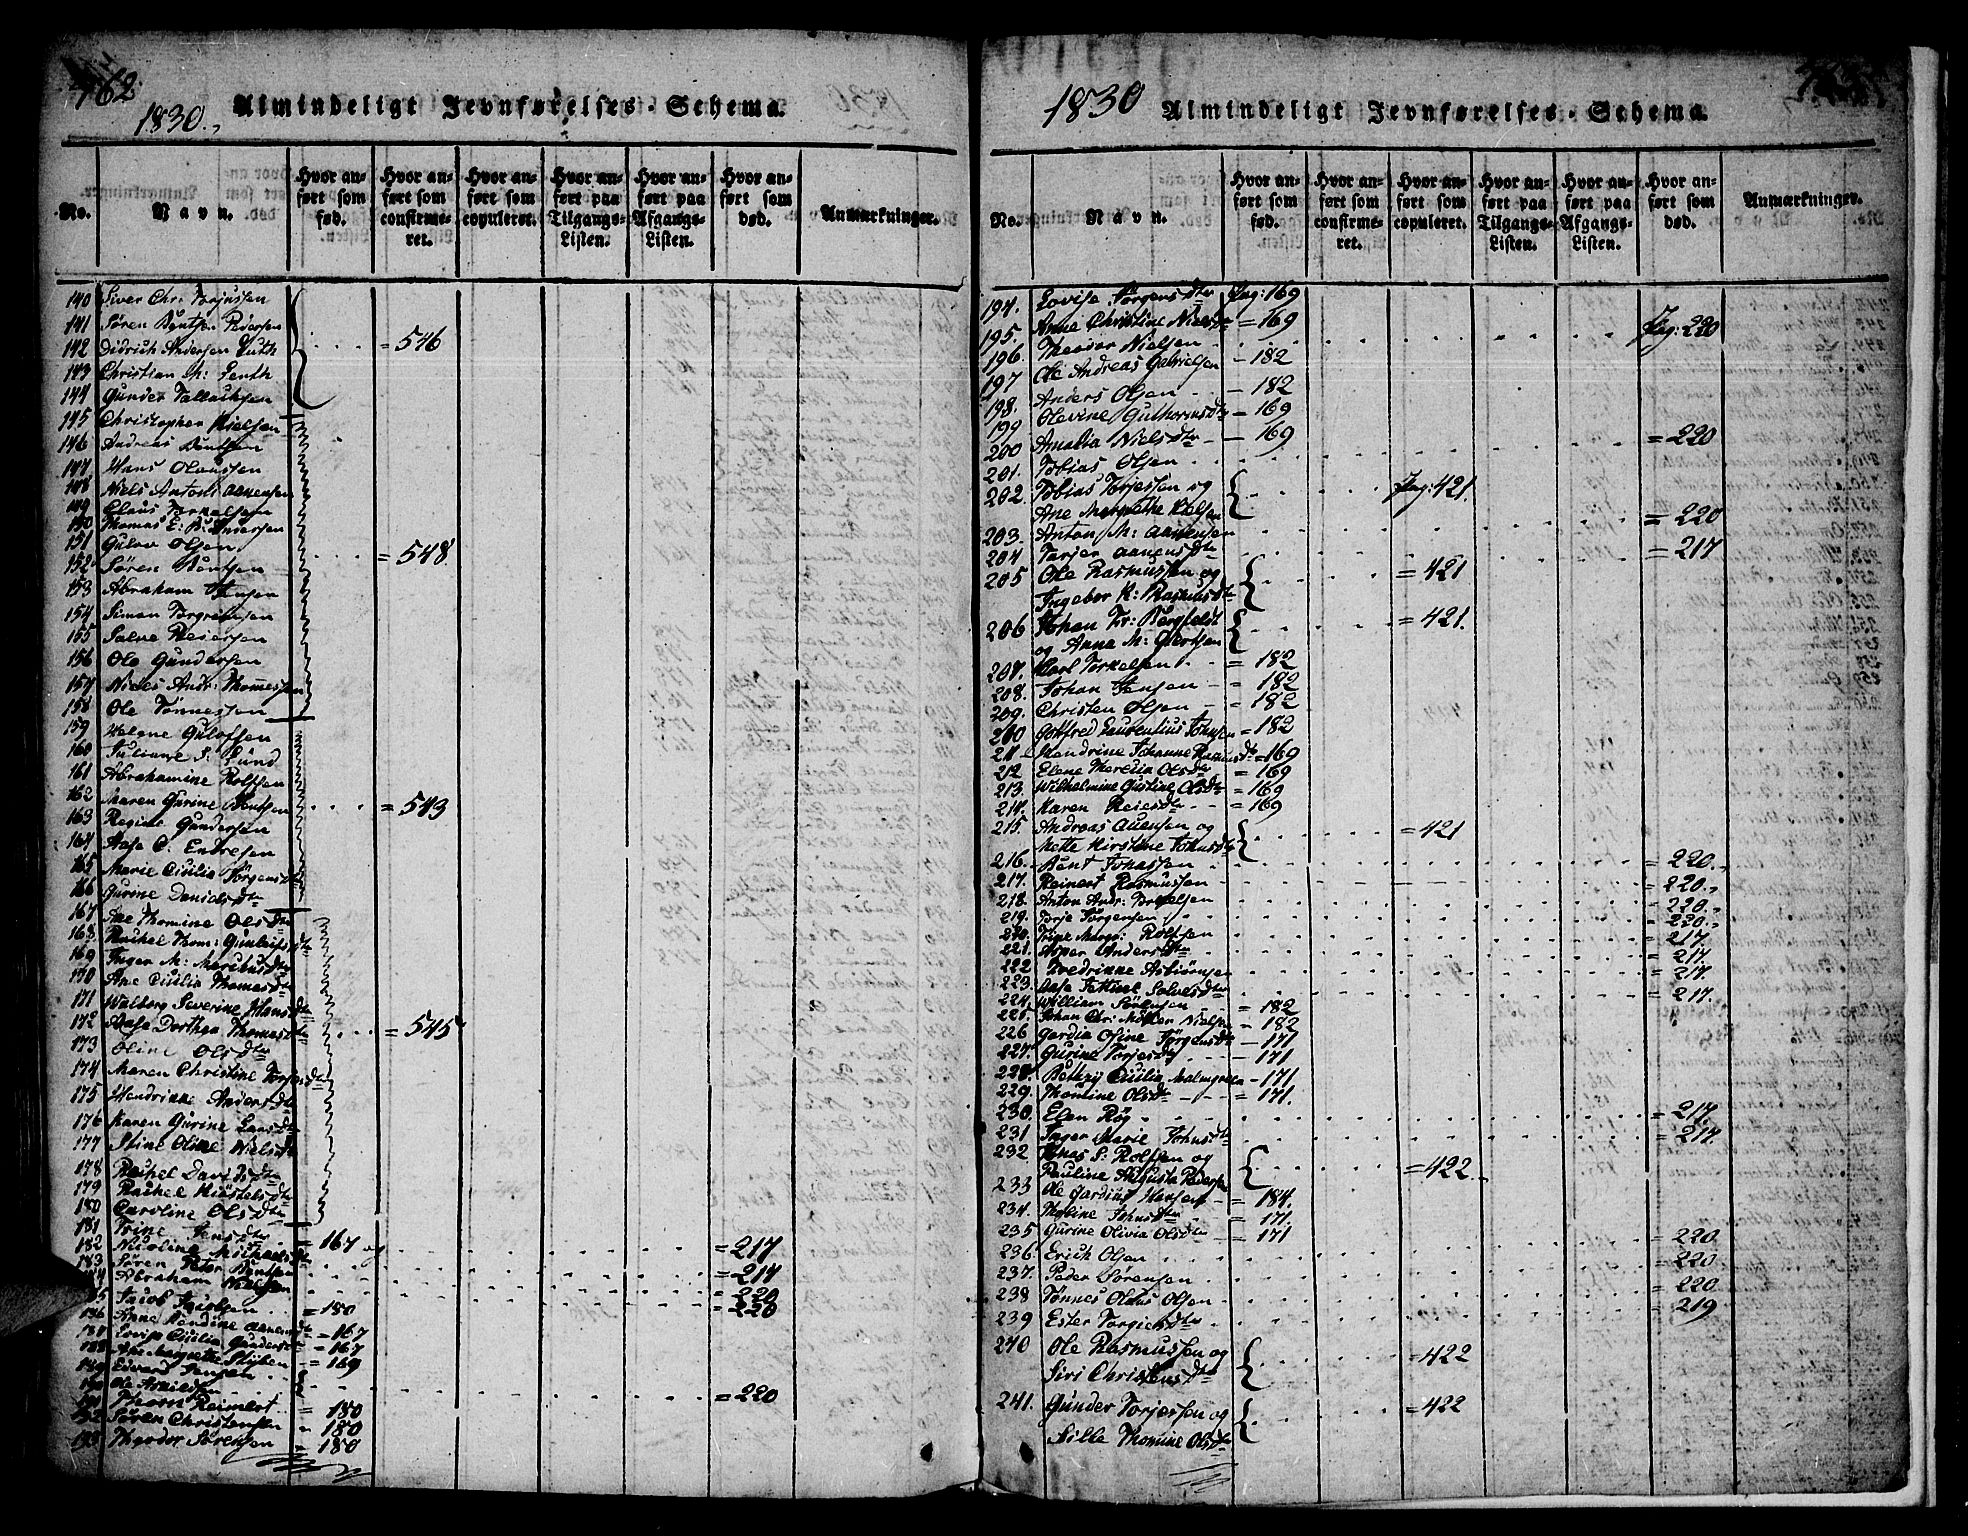 762.
1830.
Almindeligt Jevnførelses-Schema.
No.
Navn.
Hvor anført som fød.
Hvor anført som confirmeret.
Hvor anført som copuleret.
Hvor anført paa Tilgangs-Listen.
Hvor anført paa Afgangs-Listen.
Hvor anført som død.
Anmærkninger.
140 Siver Chr. Torjussen
141 Søren Bentsen Pedersen
142 Didrich Andersen Luth = 546
143 Christian M: Fenth
144 Gunder Tallachsen
145 Christopher Nielsen
146 Andreas Bentsen
147 Hans Olaussen
148 Niels Anton Aanensen
149 Claus Terkelsen
150 Thomas E: B: Andersen
151 Gulov Olsen = 548
152 Søren Bentsen
153 Abraham Jensen
154 Simon Torgrimsen
155 Salve Reiersen
156 Ole Gundersen
157 Niels Andr: Thomessen
158 Ole Tønnessen
159 Helene Guloffsen
160 Juliane S: Lund
161 Abrahamine Rolfsen
162 Maren Gurine Bentsen = 543
163 Regine Gundersen
164 Aase C: Endresen
165 Marie Cicilia Jørgensdtr
166 Gurine Danielsdtr
167 Ane Thomine Olsdtr
168 Rachel Thom: Gunleifsdtr
169 Inger M: Mariusdtr
170 Ane Cicilia Thomesdtr
171 Walborg Severine Hansdtr
172 Aase Dorthea Thomesdtr = 545
173 Oline Olsdtr
174 Maren Christine Torjesdtr
175 Hendrinne Andersdtr
176 Karen Gurine Larsdtr
177 Stine Oline Nielsdtr
178 Rachel Davidsdtr
179 Rachel Kiøstelsdtr
180 Caroline Olsdtr
181 Trine Jensdtr = 167 og
182 Nicoline Michaelsdtr = 217
183 Søren Peter Bentsen = 217
184 Abraham Nielsen = 220
185 Jacob Jacobsen = 180 = 220
186 Anne Bendine Aanensdtr = 167
187 Lovise Cicilia Gundersdtr = 167
188 Ane Margrethe Stiben = 169
189 Edvard Jensen
190 Ole Arnildsen = 220
191 Thorn Reinert = 180
192 Søren Christensen = 180
193 Theodor Sørensen = 180
1830
Almindeligt Jevnførelses-Schema.
No.
Navn.
Hvor anført som fød.
Hvor anført som confirmeret.
Hvor anført som copuleret.
Hvor anført paa Tilgangs-Listen.
Hvor anført paa Afgangs-Listen.
Hvor anført som død.
Anmærkninger.
194. Lovise Jørgensdtr Pag: 169
195. Anne Christine Nielsdtr = 169
196. Theodor Nielsen Pag: 220
197 Ole Andreas Gabrielsen - 182
198. Anders Olsen - 182
199 Olevine Guthormsdtr = 169
200 Amalia Nielsdtr - 169
201. Tobias Olsen = 220
202. Tobias Torjessen og Pag: 421
Ane Margrethe Nielsen
203. Anton M: Aanensen = 220
204 Torjer Aanensdtr = 217
205 Ole Rasmussen og = 421
Ingebor K: Rasmusdtr
206 Johan Fr: Bergfeldt = 421.
og Anne M: Giertsen
207. Carl Torkelsen = 182
208. Johan Jensen = 182
209. Christen Olsen = 182
210 Gottfred Laurentius Johnsen = 182
211 Hendrine Johanne Rasmusdtr = 169
212 Elene Theresia Olsdtr = 169
213. Wilhelmine Gustine Olsdtr = 169
214. Karen Reiersdtr = 169
215. Andreas Auensen og = 421
Mette Kirstine Johnsdtr
216. Bent Johassen = 220.
217. Reinert Rasmussen = 220.
218. Anton Andr: = 220.
219. Torje Jørgensen = 220.
220. Trine Margr: Rolfsen = 217.
221. Asper Andersdtr = 217.
222 Fredrinne Asbiørnsen = 217.
223. Aase Salvesdtr = 217.
224. William Sørensen = 182
225. Johan Chr: Møller Nielsen = 182
226 Gardia Oline Jørgensdtr - 171
227. Gurine Torjesdtr - 171
228. Bethzy Cicilia Malmgreen - 171
229. Thomine Olsdtr = 171.
230. Elen Røg = 217.
231 Inger Marie Johnsdtr = 217.
232. Jonas S: Rolfsen og = 422
Pauline Augusta Pedersen
233 Ole Gardius Hansen = 184.
234. Thaline Johnsdtr = 171.
235 Gurine Olivia Olsdtr = 171
236. Erich Olsen = 220.
237. Peder Sørensen = 220
238 Tønnes Olaus Olsen = 220
239 Ester Torgiersdtr = 219
240 Ole Rasmussen og = 422
Siri Christensdtr
241. Gunder Torjessen og = 422
Silke Thomine Olsdtr